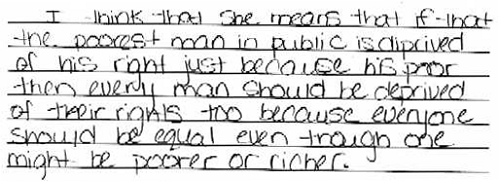 I think that she means that if that
the poorest man in public is diprived
of his right just because his poor
then every man should be deprived
of their rights too because everyone
should be equal even trough one
might be poorer or richer.